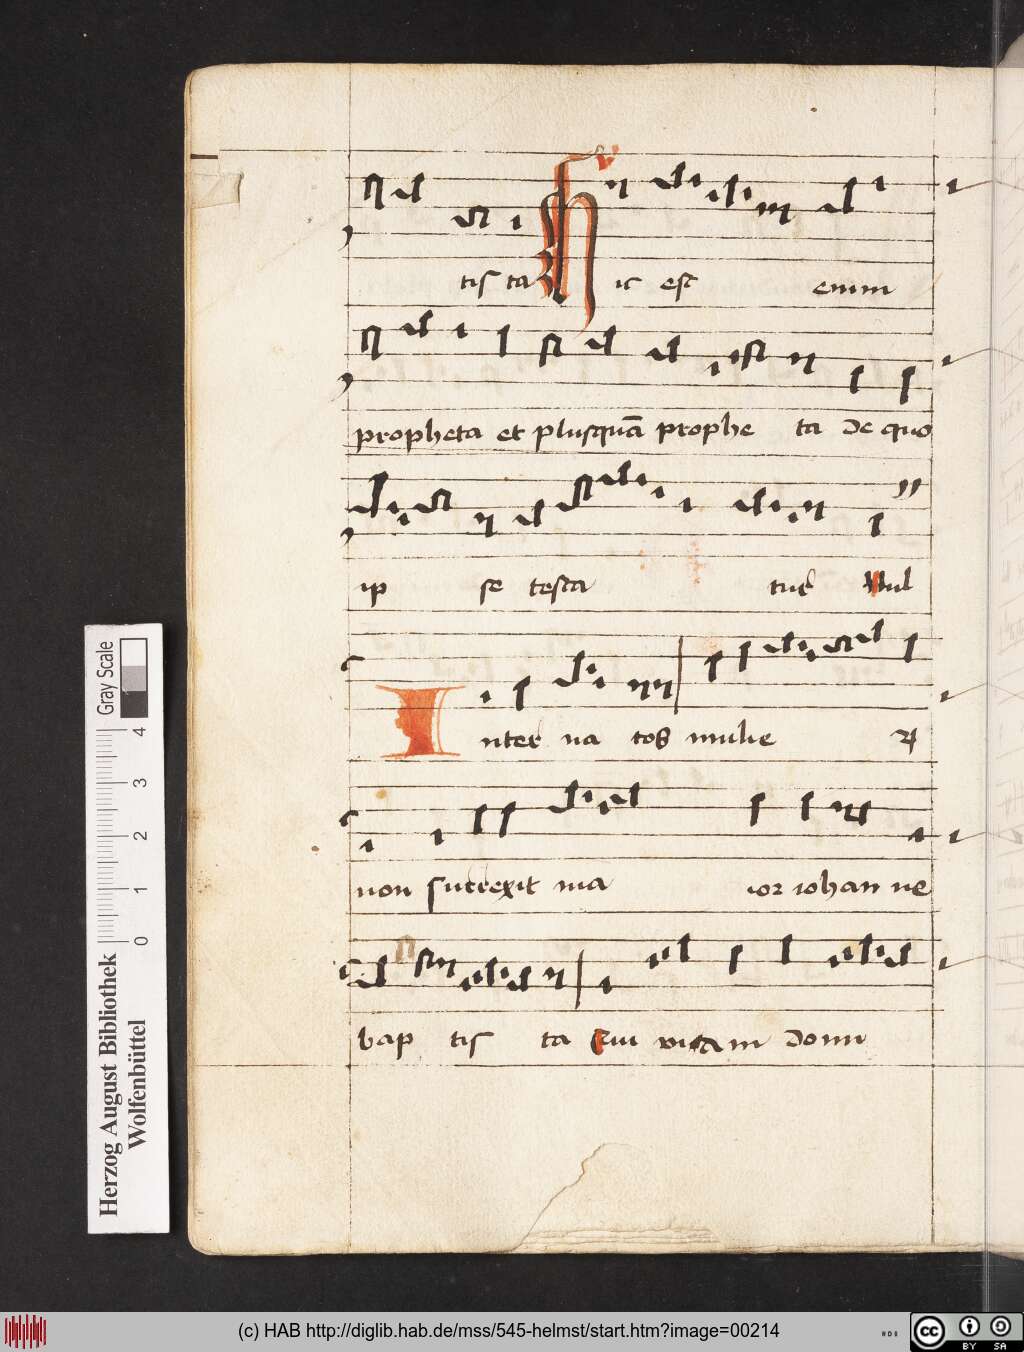 tis ta Hic est enim
propheta et plusquā prophe ta de quo
ip se testa tur Nul
Inter na tos mulie
non surrexit ma ior iohan ne
bap tis ta Cui vitam domi
Gray Scale
0 1 2 3 4
Herzog August Bibliothek
Wolfenbüttel
(c) HAB http://diglib.hab.de/mss/545-helmst/start.htm?image=00214
cc BY SA